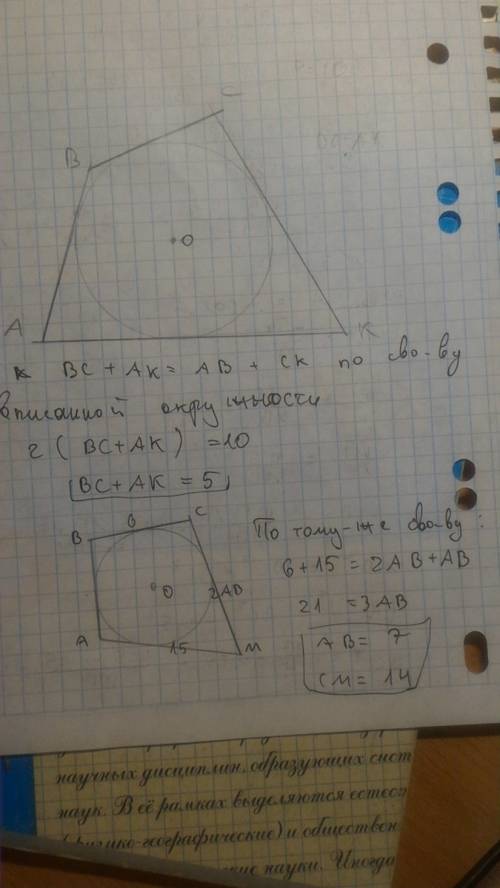 C
B
O
A
K
к BC + AK = AB + CK по сво-ву
вписанной окружности
2 ( BC + AK ) = 10
BC + AK = 5
По тому-же сво-ву :
B 6 C
6 + 15 = 2AB + AB
O 2AB
21 = 3AB
A 15 M
AB = 7
CM = 14
научных дисциплин, образующих сист
наук. В её рамках выделяются естест
(физико-географические) и обществен
науки. Иногда